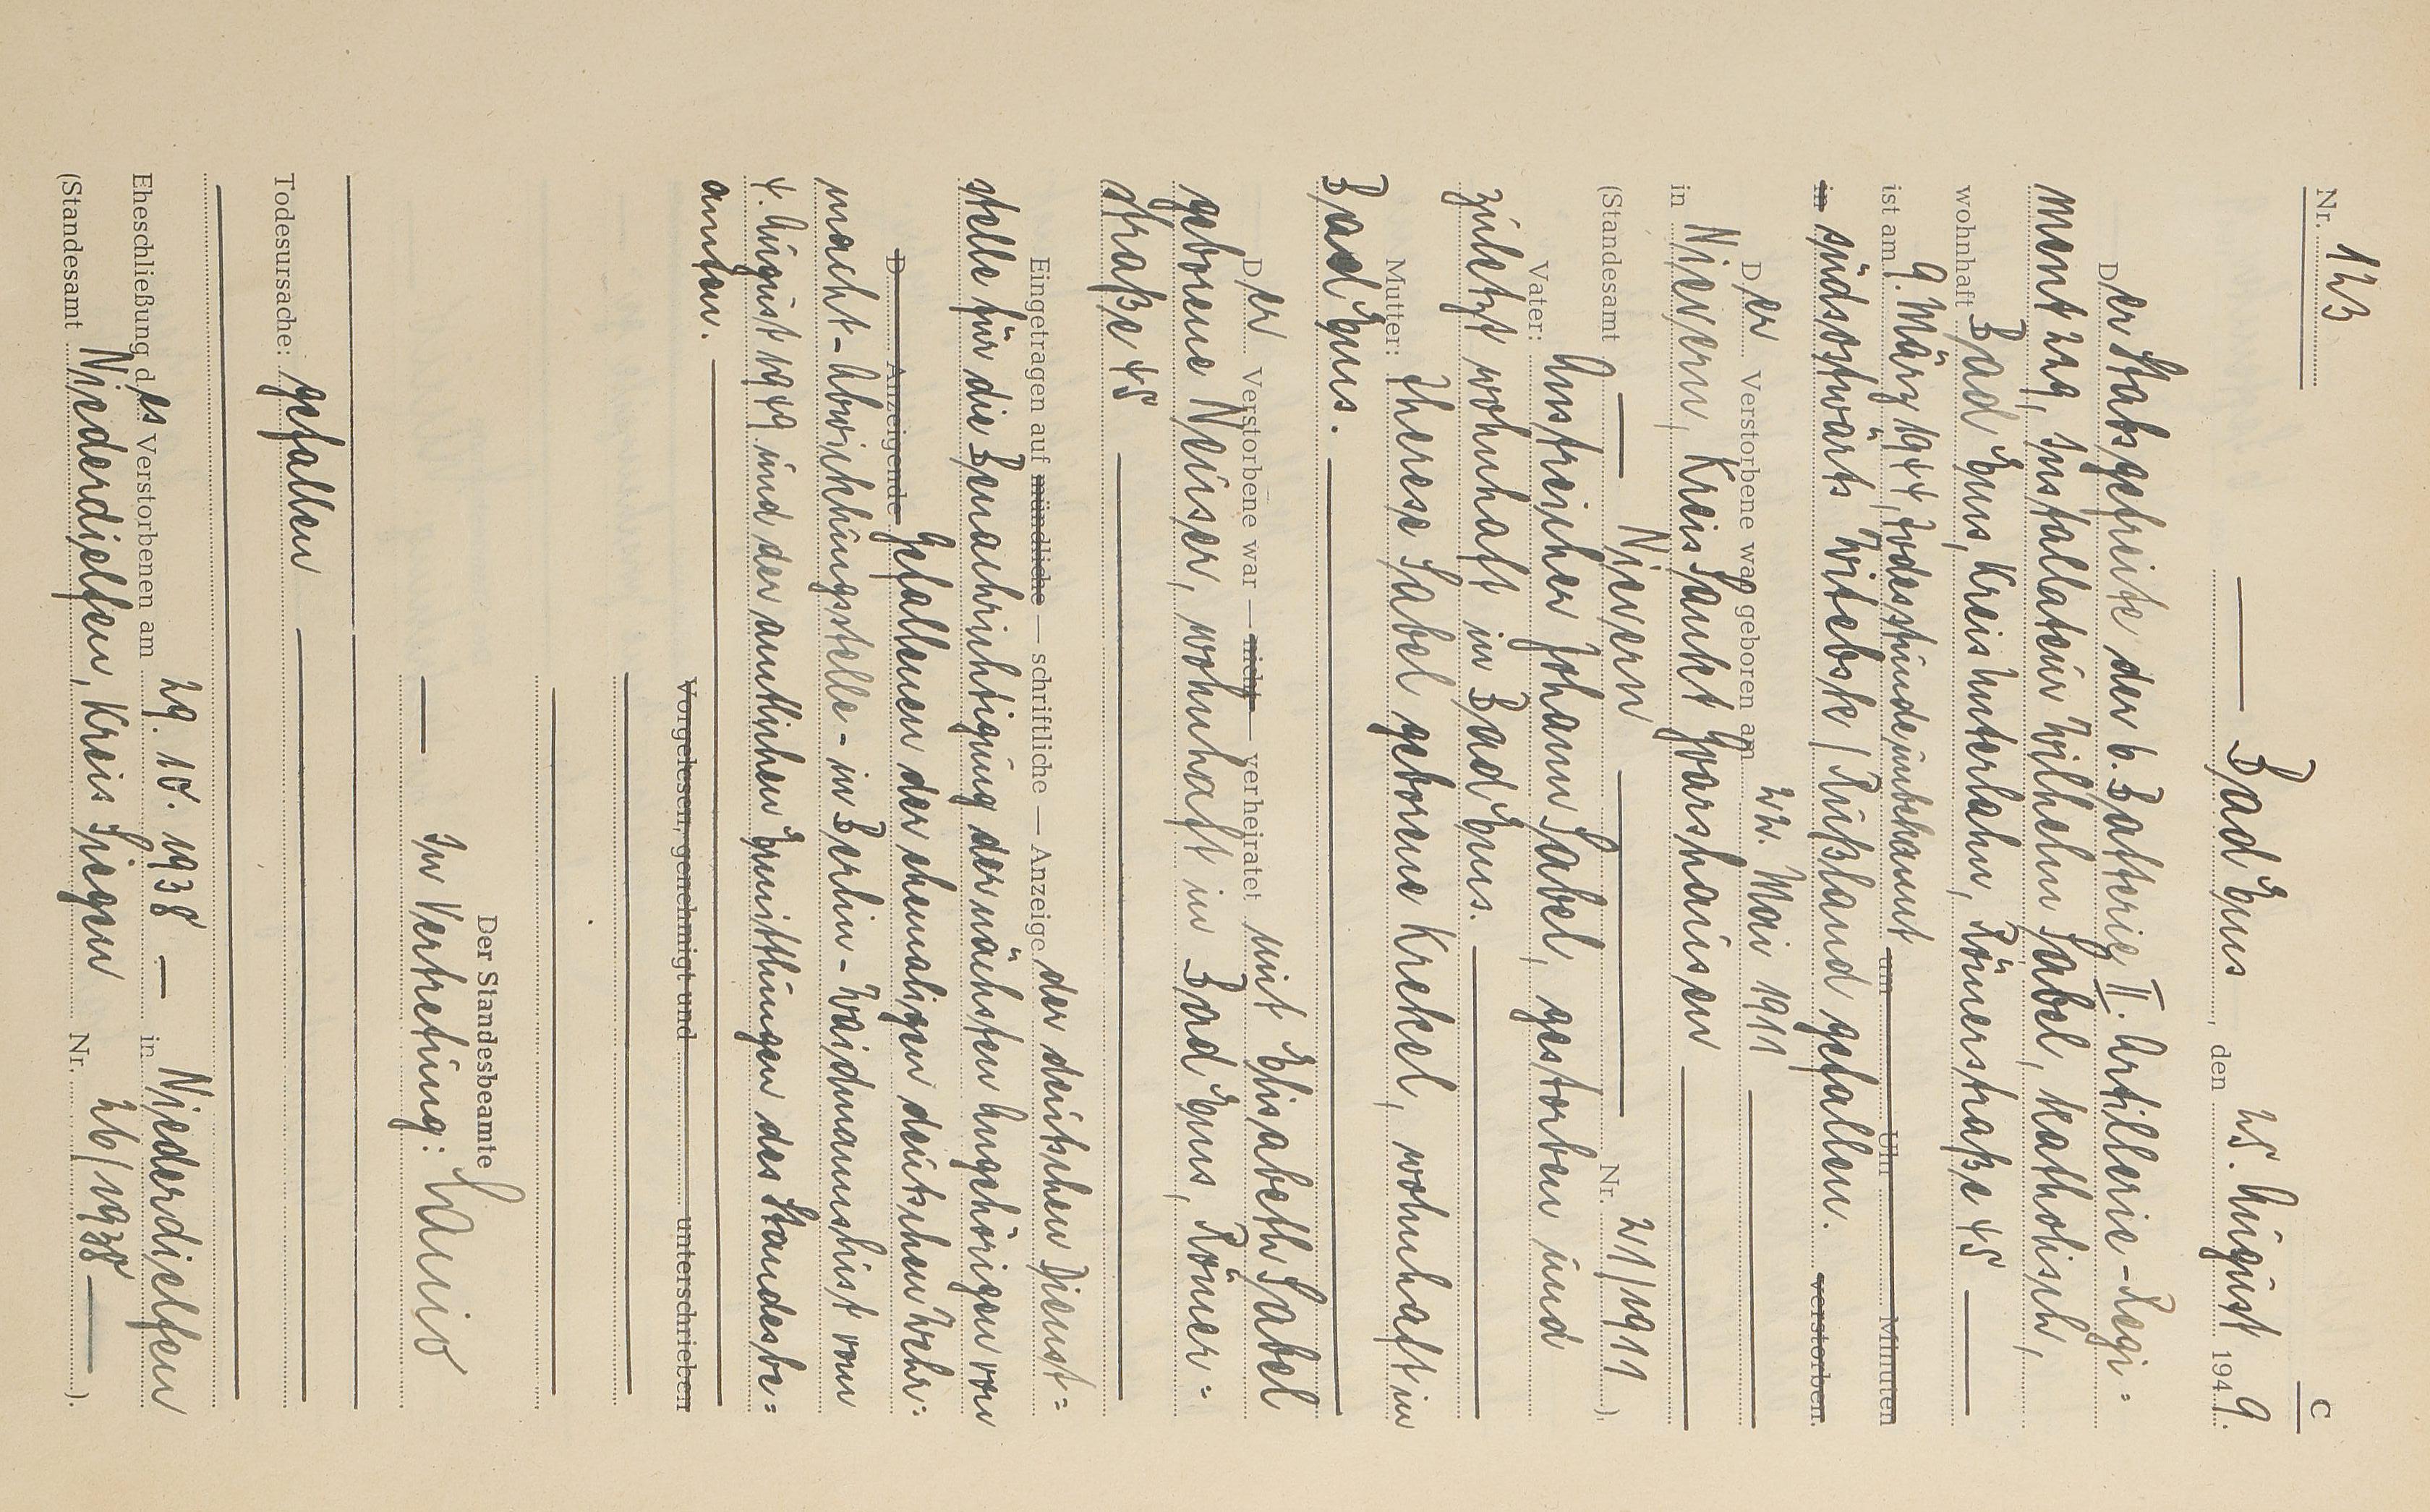 C
Nr. 123
Bad Ems, den 25. August 1949.
Der Stabsgefreite der 6. Batterie II. Artillerie-Regi=
ment 229, Installateur Wilhelm Sabel, katholisch,
wohnhaft Bad Ems, Kreis Unterlahn, Römerstraße 45
ist am 9. März 1944, Todesstunde unbekannt um Uhr Minuten
in südostwärts Witebsk / Rußland gefallen. verstorben.
Der Verstorbene war geboren am 22. Mai 1911
in Nievern, Kreis Sankt Goarshausen
(Standesamt Nievern Nr. 21/1911).
Vater: Anstreicher Johann Sabel, gestorben und
zuletzt wohnhaft in Bad Ems.
Mutter: Therese Sabel geborene Krekel, wohnhaft in
Bad Ems.
Der Verstorbene war — nicht — verheiratet mit Elisabeth Sabel
geborene Neuser, wohnhaft in Bad Ems, Römer=
straße 45
Eingetragen auf mündliche — schriftliche — Anzeige der deutschen Dienst=
stelle für die Benachrichtigung der nächsten Angehörigen von
D Anzeigende Gefallenen der ehemaligen deutschen Wehr=
macht - Abwicklungsstelle - in Berlin - Waidmannslust vom
4. August 1949 und der amtlichen Ermittlungen des Standesbe=
amten.
Vorgelesen, genehmigt und unterschrieben
Der Standesbeamte
In Vertretung:
Todesursache: gefallen
Eheschließung des Verstorbenen am 29. 10. 1938 — in Niederdielfen
(Standesamt Niederdielfen, Kreis Siegen Nr. 26/1938).